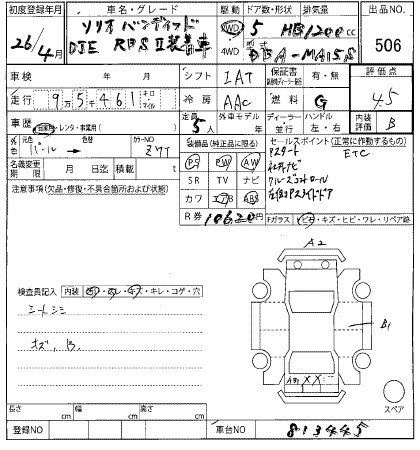 初度登録年月 車名・グレード 駆動 ドア数・形状 排気量 出品NO.
26/4月 ソリオ バンディッド 2WD 5 HB 1200cc 506
DJE RBS Ⅱ装着車 4WD DBA-MA15S
車検 年 月 シフト IAT 保証書 有・無 評価点
走行 9万5千461 キロ マイル 冷房 AAC 燃料 G 4.5
車歴 自家用・レンタ・事業用( ) 定員 5人 外車モデル 年 ディーラー 並行 ハンドル 左・右 内装評価 B
外色 元色 パール 色替 カラーNO ZVT 装備品(純正品に限る) セールスポイント(正常に作動するもの)
名義変更期限 月 日迄 積載 t PS PW AW Pスタート ETC
社外ナビ
注意事項(欠品・修復・不具合箇所および状態) SR TV ナビ クルーズコントロール
カワ エアB ABS 左側Pスライドドア
R券 10620 円 Fガラス トビキ・キズ・ヒビ・ワレ・リペア跡
A2
検査員記入 内装 ヨゴレ・スレ・キズ・キレ・コゲ・穴
シートシミ
B1
キズ、B、
A1 X X
スペア
長さ cm 幅 cm 高さ cm
登録NO 車台NO 813445